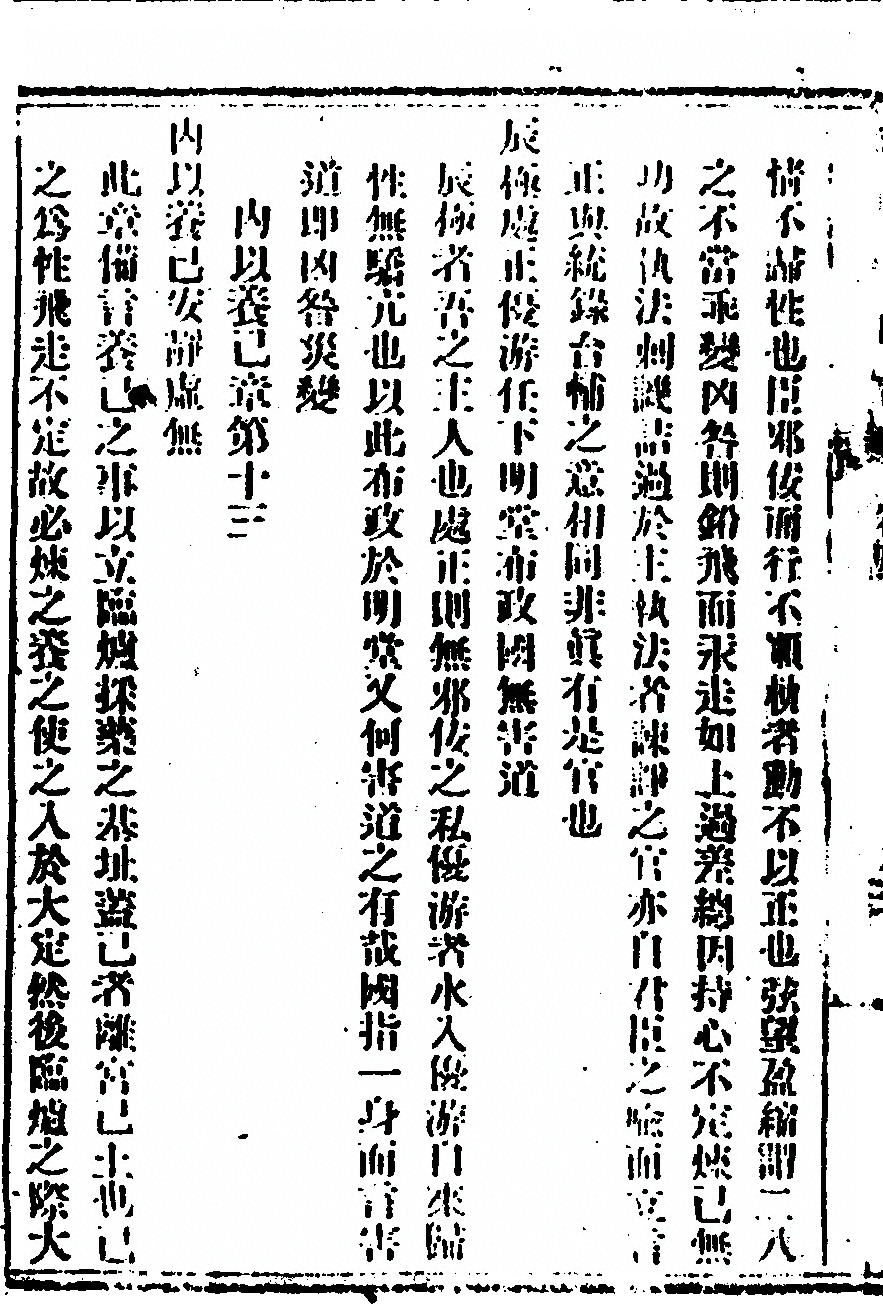 情不歸性也臣邪佞而行不順軌者動不以正也弦望盈縮謂二八
之不當乖變凶咎則鉛飛而汞走如上過差總因持心不定煉己無
功故執法刺譏詰過於主執法者諫諍之官亦自君臣之喻而立言
正與統錄台輔之意相同非眞有是官也
辰極處正優游任下明堂布政國無害道
辰極者吾之主人也處正則無邪佞之私優游者水入優游自來歸
性無驕亢也以此布政於明堂又何害道之有哉國指一身而言害
道即凶咎災變
內以養己章第十三
內以養己安靜虛無
此章備言養己之事以立臨爐採藥之基址蓋己者離宮己土也己
之爲性飛走不定故必煉之養之使之入於大定然後臨爐之際大